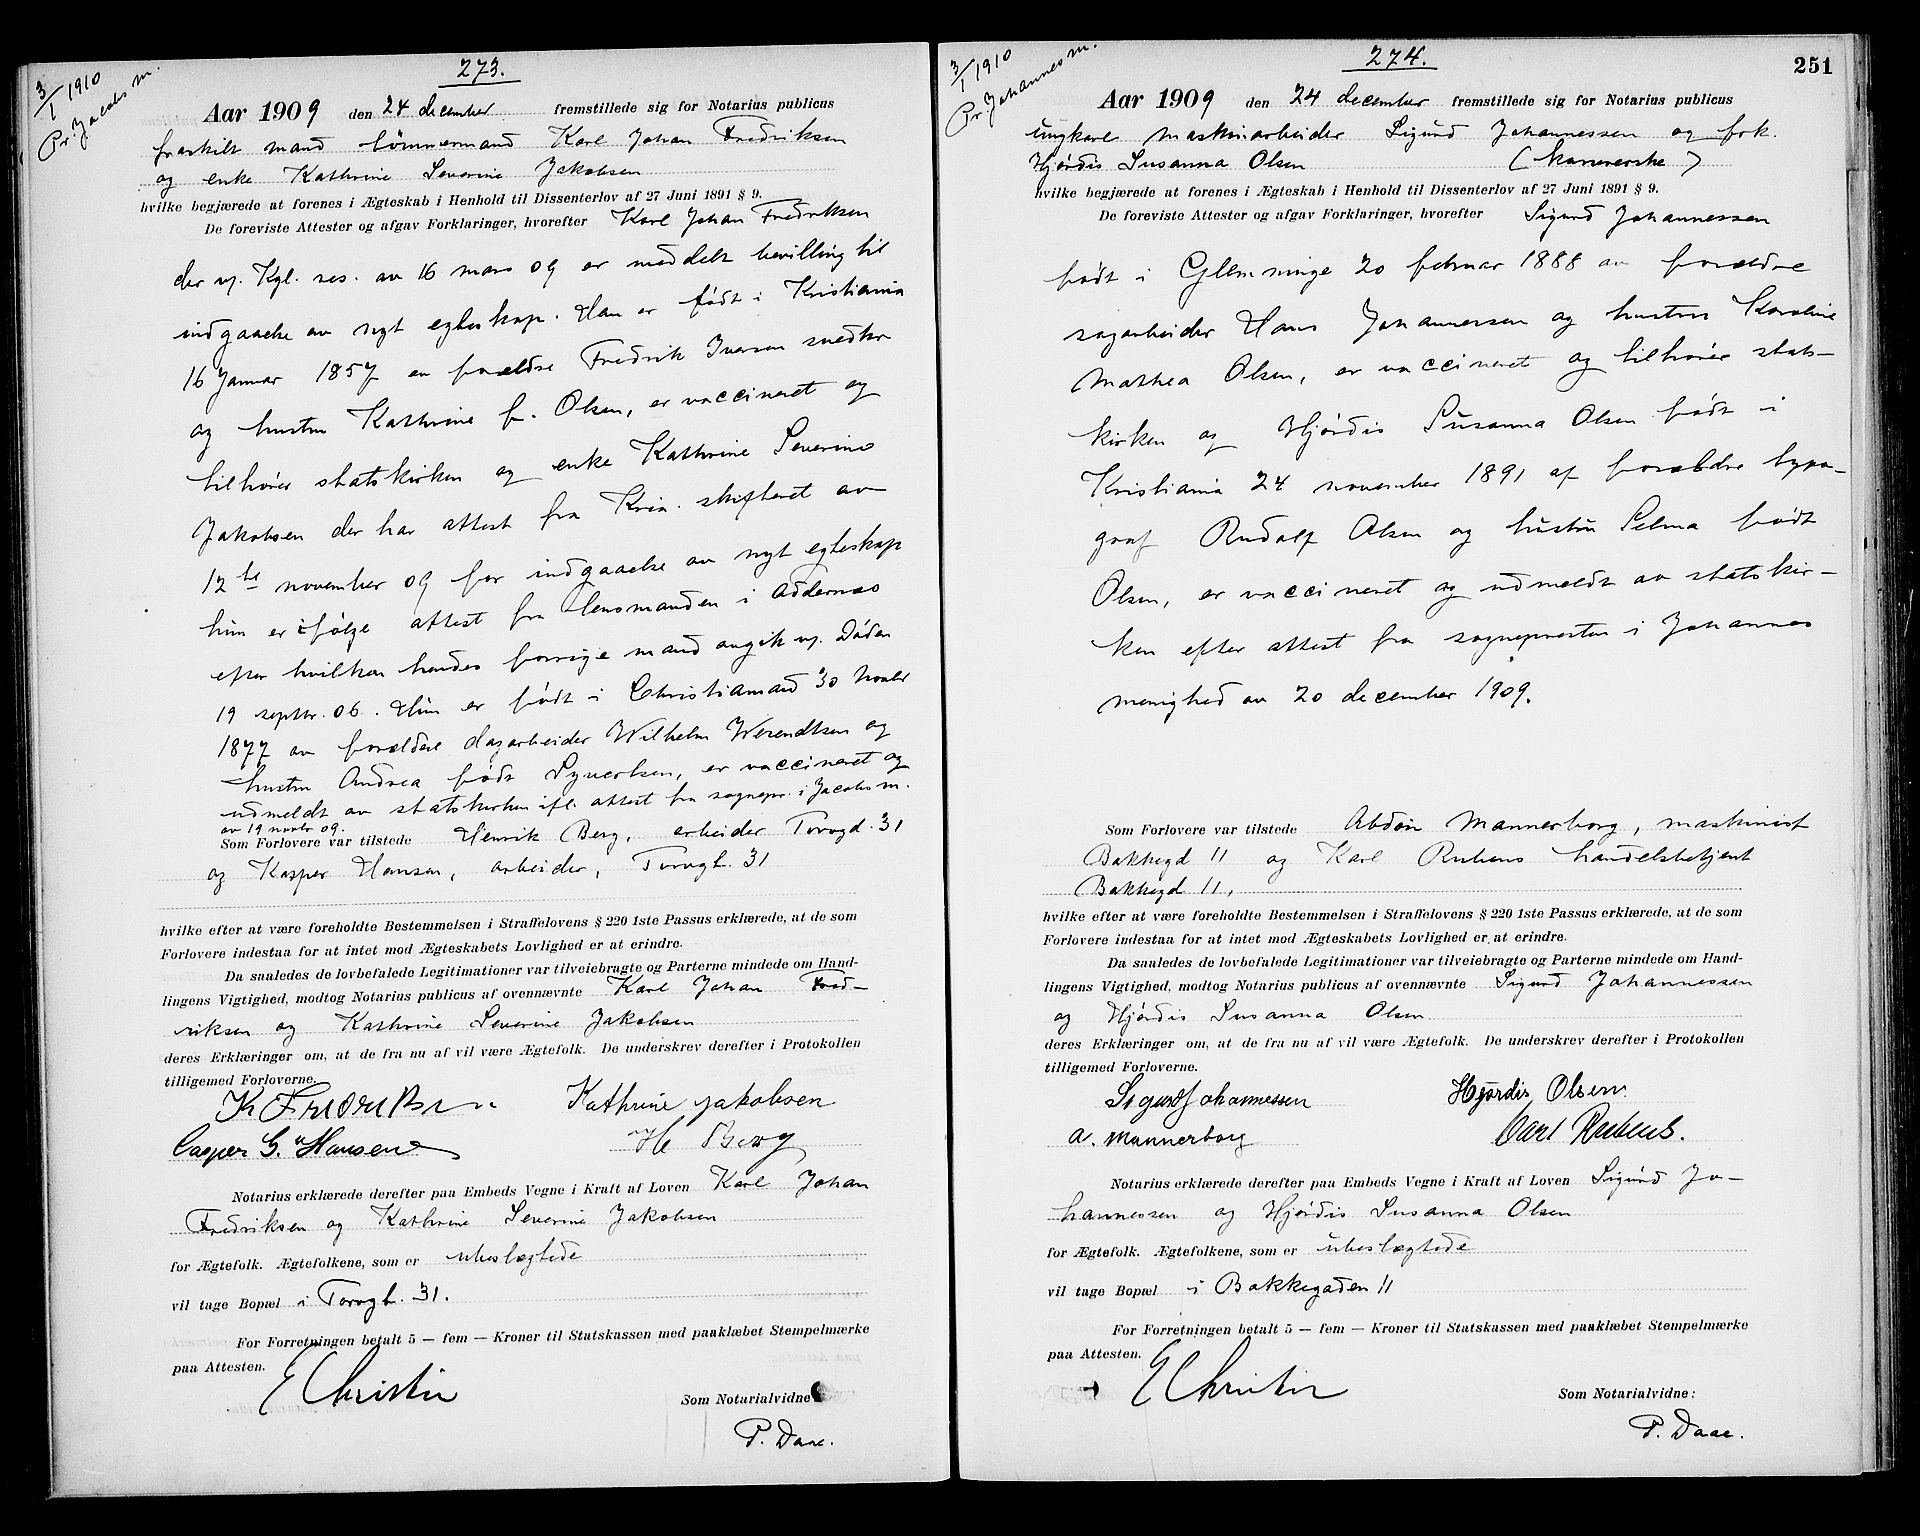 3/1 1910
Pr. Jacobs m.
273.
Aar 1909 den 24 december fremstillede sig for Notarius publicus
fraskilt mand tømmermand Karl Johan Fredriksen
og enke Kathrine Severine Jakobsen
hvilke begjærede at forenes i Ægteskab i Henhold til Dissenterlov af 27 Juni 1891 § 9.
De foreviste Attester og afgav Forklaringer, hvorefter Karl Johan Fredriksen
der v. Kgl. res. av 16 mars 09 er meddelt bevilling til
indgaaelse av nyt egteskap. Han er født i Kristiania
16 Januar 1857 av forældre Fredrik Iversen snedker
og hustru Kathrine f. Olsen, er vaccineret og
tilhører statskirken og enke Kathrine Severine
Jakobsen der har attest fra Kria. skifteret av
12te november 09 for indgaaelse av nyt egteskap
hun er ifølge attest fra lensmanden i Oddernæs
efter hvilken hendes forrige mand avgik v. Døden
19 septbr. 06. Hun er født i Christiansand 30 novbr
1877 av forældre dagarbeider Wilhelm Werendtsen og
hustru Andrea født Syvertsen, er vaccineret og
udmeldt av statskirken ifl. attest fra sognepr. i Jacobs m.
av 19 novbr 09.
Som Forlovere var tilstede Henrik Berg, arbeider Torvgd. 31
og Kasper Hansen, arbeider, Torvgt. 31
hvilke efter at være foreholdte Bestemmelsen i Straffelovens § 220 1ste Passus erklærede, at de som
Forlovere indestaa for at intet mod Ægteskabets Lovlighed er at erindre.
Da saaledes de lovbefalede Legitimationer var tilveiebragte og Parterne mindede om Hand-
lingens Vigtighed, modtog Notarius publicus af ovennævnte Karl Johan Fred-
riksen og Kathrine Severine Jakobsen
deres Erklæringer om, at de fra nu af vil være Ægtefolk. De underskrev derefter i Protokollen
tilligemed Forloverne.
K Frederiksen Kathrine Jakobsen
Casper G. Hansen He Berg
Notarius erklærede derefter paa Embeds Vegne i Kraft af Loven Karl Johan
Fredriksen og Kathrine Severine Jakobsen
for Ægtefolk. Ægtefolkene, som er ubeslægtede
vil tage Bopæl i Torvgt. 31.
For Forretningen betalt 5 — fem — Kroner til Statskassen med paaklæbet Stempelmærke
paa Attesten.
E Christie
Som Notarialvidne
P. Daae.
251
3/1 1910
Pr. Johannes m.
274.
Aar 1909 den 24 december fremstillede sig for Notarius publicus
ungkarl maskinarbeider Sigurd Johannessen og frk.
Hjørdis Susanna Olsen
hvilke begjærede at forenes i Ægteskab i Henhold til Dissenterlov af 27 Juni 1891 § 9.
De foreviste Attester og afgav Forklaringer, hvorefter Sigurd Johannessen
født i Glemminge 20 februar 1888 av forældre
sagarbeider Hans Johannessen og hustru Karoline
Mathea Olsen, er vaccineret og tilhører stats-
kirken og Hjørdis Susanna Olsen født i
Kristiania 24 november 1891 af forældre typo-
graf Rudolf Olsen og hustru Selma født
Olsen, er vaccineret og udmeldt av statskir-
ken efter attest fra sognepresten i Johannes
menighed av 20 december 1909.
Som Forlovere var tilstede Abdon Mannerborg, maskinist
Bakkegd 11 og Karl Rubens handelsbetjent
Bakkegd 11,
hvilke efter at være foreholdte Bestemmelsen i Straffelovens § 220 1ste Passus erklærede, at de som
Forlovere indestaa for at intet mod Ægteskabets Lovlighed er at erindre.
Da saaledes de lovbefalede Legitimationer var tilveiebragte og Parterne mindede om Hand-
lingens Vigtighed, modtog Notarius publicus af ovennævnte Sigurd Johannessen
og Hjørdis Susanna Olsen
deres Erklæringer om, at de fra nu af vil være Ægtefolk. De underskrev derefter i Protokollen
tilligemed Forloverne.
Sigurd Johannessen Hjørdis Olsen.
A. Mannerborg Carl Rubens.
Notarius erklærede derefter paa Embeds Vegne i Kraft af Loven Sigurd Jo-
hannessen og Hjørdis Susanna Olsen
for Ægtefolk. Ægtefolkene, som er ubeslægtede
vil tage Bopæl i Bakkegaden 11
For Forretningen betalt 5 — fem — Kroner til Statskassen med paaklæbet Stempelmærke
paa Attesten.
E Christie
Som Notarialvidne:
P. Daae.